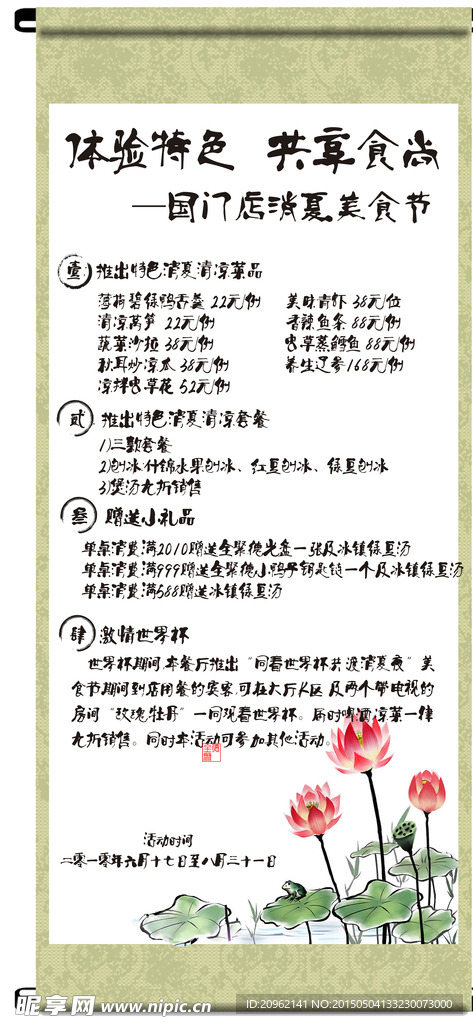 体验特色 共享食尚
—国门店消夏美食节
壹 推出特色消夏清凉菜品
薄荷碧绿鸭舌羹 22元/例 美味青虾 38元/位
清凉莴笋 22元/例 香辣鱼条 88元/例
蔬菜沙拉 38元/例 虫草蒸鳕鱼 88元/例
秋耳炒凉瓜 38元/例 养生辽参168元/例
凉拌虫草花 52元/例
贰 推出特色消夏清凉套餐
1)三款套餐
2)刨冰:什锦水果刨冰、红豆刨冰、绿豆刨冰
3)煲汤九折销售
叁 赠送小礼品
单桌消费满2010赠送全聚德光盘一张及冰镇绿豆汤
单桌消费满999赠送全聚德小鸭子钥匙链一个及冰镇绿豆汤
单桌消费满588赠送冰镇绿豆汤
肆 激情世界杯
世界杯期间,本餐厅推出“同看世界杯共渡消夏夜”美
食节期间到店用餐的宾客,可在大厅A区及两个带电视的
房间“玫瑰,牡丹”一同观看世界杯。届时啤酒,凉菜一律
九折销售。同时本活动可参加其他活动。
活动时间
二零一零年六月十七日至八月三十一日
昵享网 www.nipic.cn
ID:20962141 NO:20150504133230073000